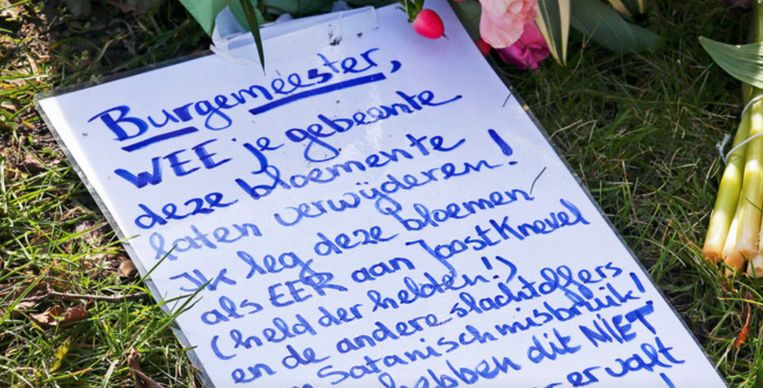 Burgemeester,
WEE je gebeente
deze bloemente
laten verwijderen!
Ik leg deze bloemen
als EER aan Joost Knevel
(held der helden!)
en de andere slachtoffers
Satanisch misbruik!
hebben dit NIET
er valt